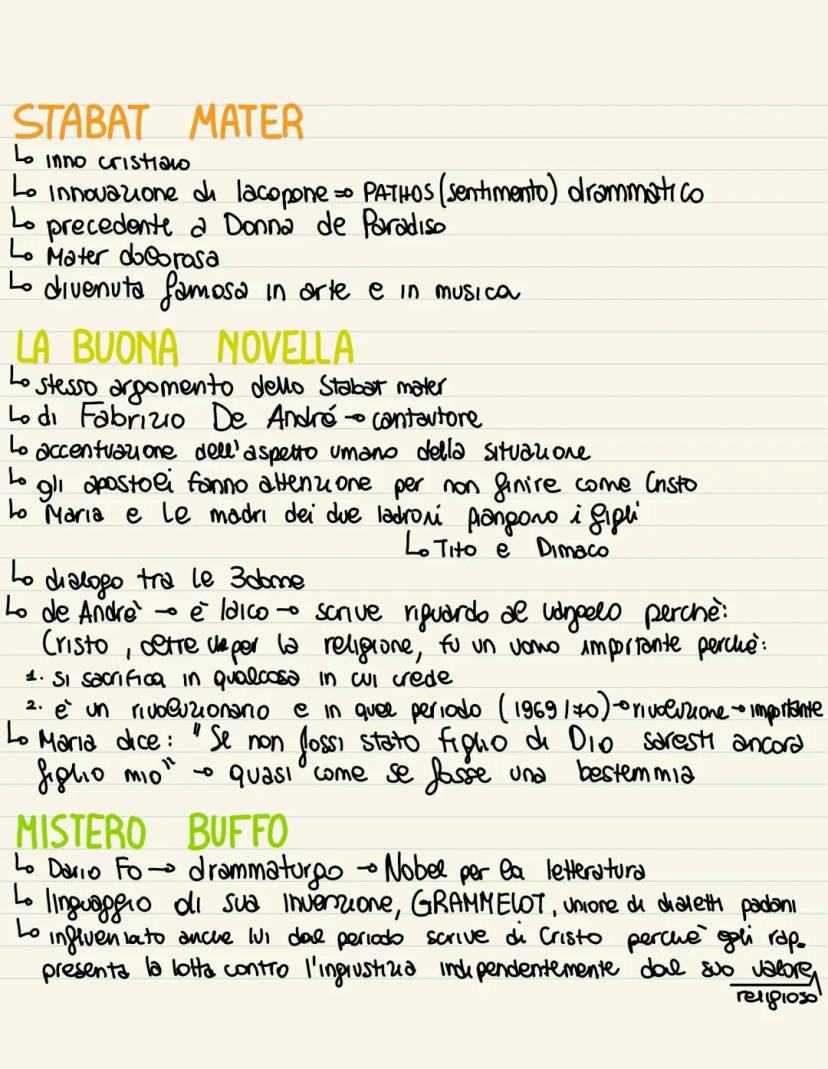 STABAT MATER
↳ inno cristiano
↳ innovazione di Iacopone ⇒ PATHOS (sentimento) drammatico
↳ precedente a Donna de Paradiso
↳ Mater dolorosa
↳ divenuta famosa in arte e in musica
LA BUONA NOVELLA
↳ stesso argomento dello Stabat mater
↳ di Fabrizio De André → cantautore
↳ accentuazione dell'aspetto umano della situazione
↳ gli apostoli fanno attenzione per non finire come Cristo
↳ Maria e le madri dei due ladroni piangono i figli
↳ Tito e Dimaco
↳ dialogo tra le 3 donne
↳ de Andrè → è laico → scrive riguardo al vangelo perchè:
Cristo, oltre che per la religione, fu un uomo importante perchè:
1. si sacrifica in qualcosa in cui crede
2. è un rivoluzionario e in quel periodo (1969/70) → rivoluzione → importante
↳ Maria dice: "Se non fossi stato figlio di Dio saresti ancora
figlio mio" → quasi come se fosse una bestemmia
MISTERO BUFFO
↳ Dario Fo → drammaturgo → Nobel per la letteratura
↳ linguaggio di sua invenzione, GRAMMELOT, unione di dialetti padani
↳ influenzato anche lui dal periodo scrive di Cristo perchè egli rap-
presenta la lotta contro l'ingiustizia indipendentemente dal suo valore
religioso